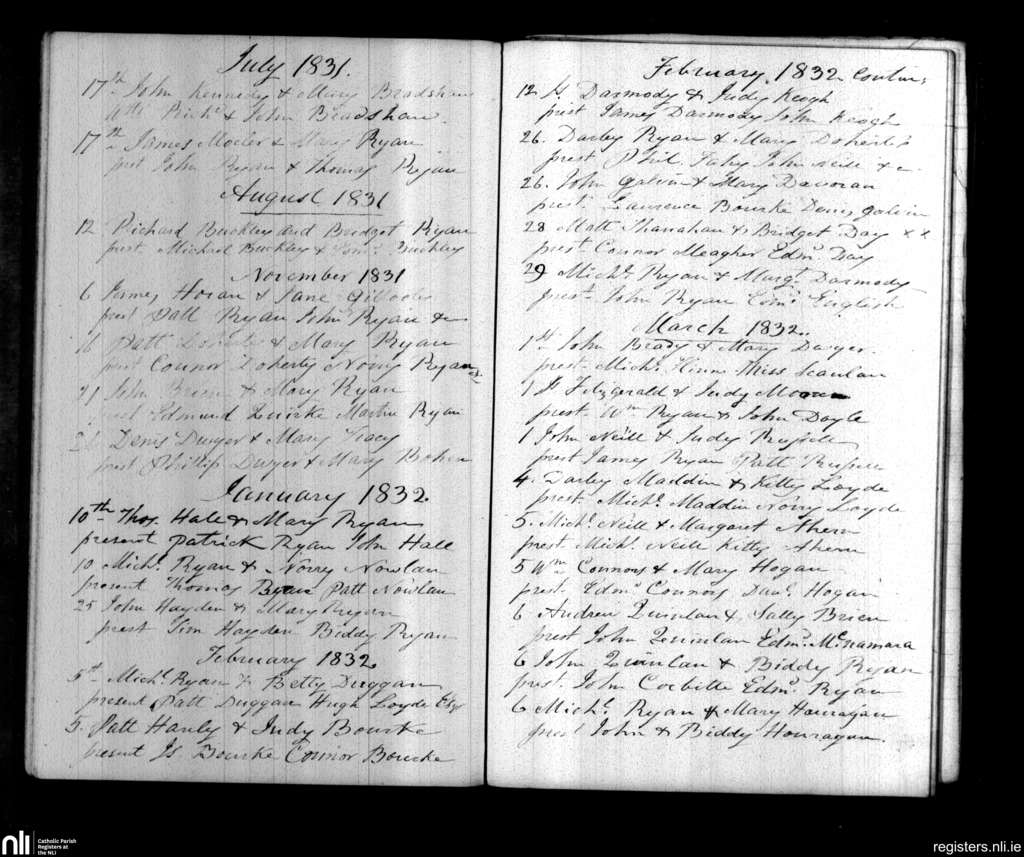 July 1831.
17th John Kennedy & Mary Bradshaw
Richd & John Bradshaw
17th James & Mary Ryan
prest John Ryan & Thomas Ryan
August 1831
12 Richard Buckley and Bridget Ryan
prest Michael Buckley & Buckley
November 1831
6 James Horan & Jane
prest Patt Ryan John Ryan &c
16 Patt & Mary Ryan
prest Connor Doherty Nony Ryan
21 John Brien & Mary Ryan
Edmund Quirke Martin Ryan
Denis Dwyer & Mary Tracy
prest Phillip Dwyer & Mary Bohen
January 1832.
10th Thos. Hale & Mary Ryan
present Patrick Ryan John Hall
10 Michl. Ryan & Norry Nowlan
present Thomas Ryan Patt Nowlan
25 John Hayden & Mary Ryan
prest Tim Hayden Biddy Ryan
February 1832.
5th Michl. Ryan & Betty Duggan
present Patt Duggan Hugh Loyde Esqr
5. Patt Hanly & Judy Bourke
present Js Bourke Connor Bourke
February 1832 Continu;
12. Js Darmody & Judy Keogh
prest James Darmody John Keogh
26. Darby Ryan & Mary
prest Phil. Fahy John Neill &c
26. John Galvin & Mary Davoran
prest. Laurence Bourke Denis Galvin
28 Matt Shanahan & Bridget Day x x
prest Connor Meagher Edmd Day
29 Michl. Ryan & Margt. Darmody
prest. John Ryan English
March 1832.
1st John Brady & Mary Dwyer.
prest. Michl. Miss Scanlan
1 Js Fitzgerald & Judy
prest. Wm Ryan & John Doyle
1 John Neill & Judy Russell
prest James Ryan Patt Russell
4. Darby Maddin & Kitty Loyde
prest. Michl. Maddin Norry Loyde
5. Michl. Neill & Margaret Ahern
prest. Michl. Neill Kitty Ahern
5 Wm Connors & Mary Hogan
prest. Edmd Connors Danl. Hogan
6 Andrew Quinlan & Sally Brien
prest John Quinlan Edmd. McNamara
6 John Quinlan & Biddy Ryan
prest. John Corbitte Edmd. Ryan
6 Michl. Ryan & Mary Houragan
prest John & Biddy Houragan.
nli Catholic Parish
Registers at
the NLI
registers.nli.ie